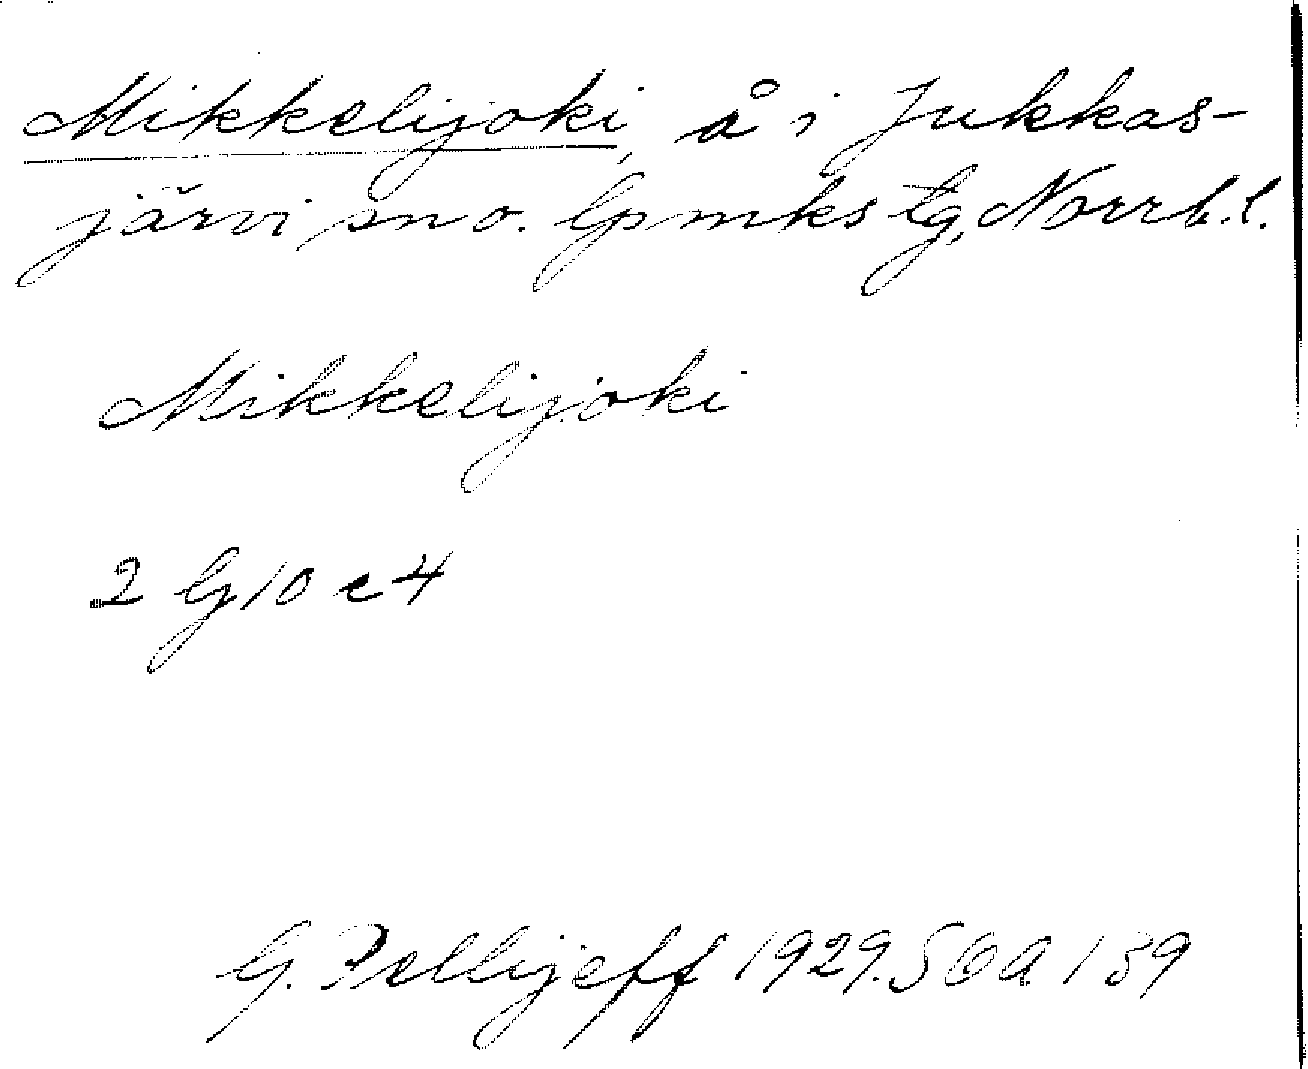 Mikkelijoki, å i Jukkas-
järvi sn o. lpmks tg, Norrb. l.
Mikkelijoki
2 G 10 c 4
G. Pellijeff 1929. SOA 139